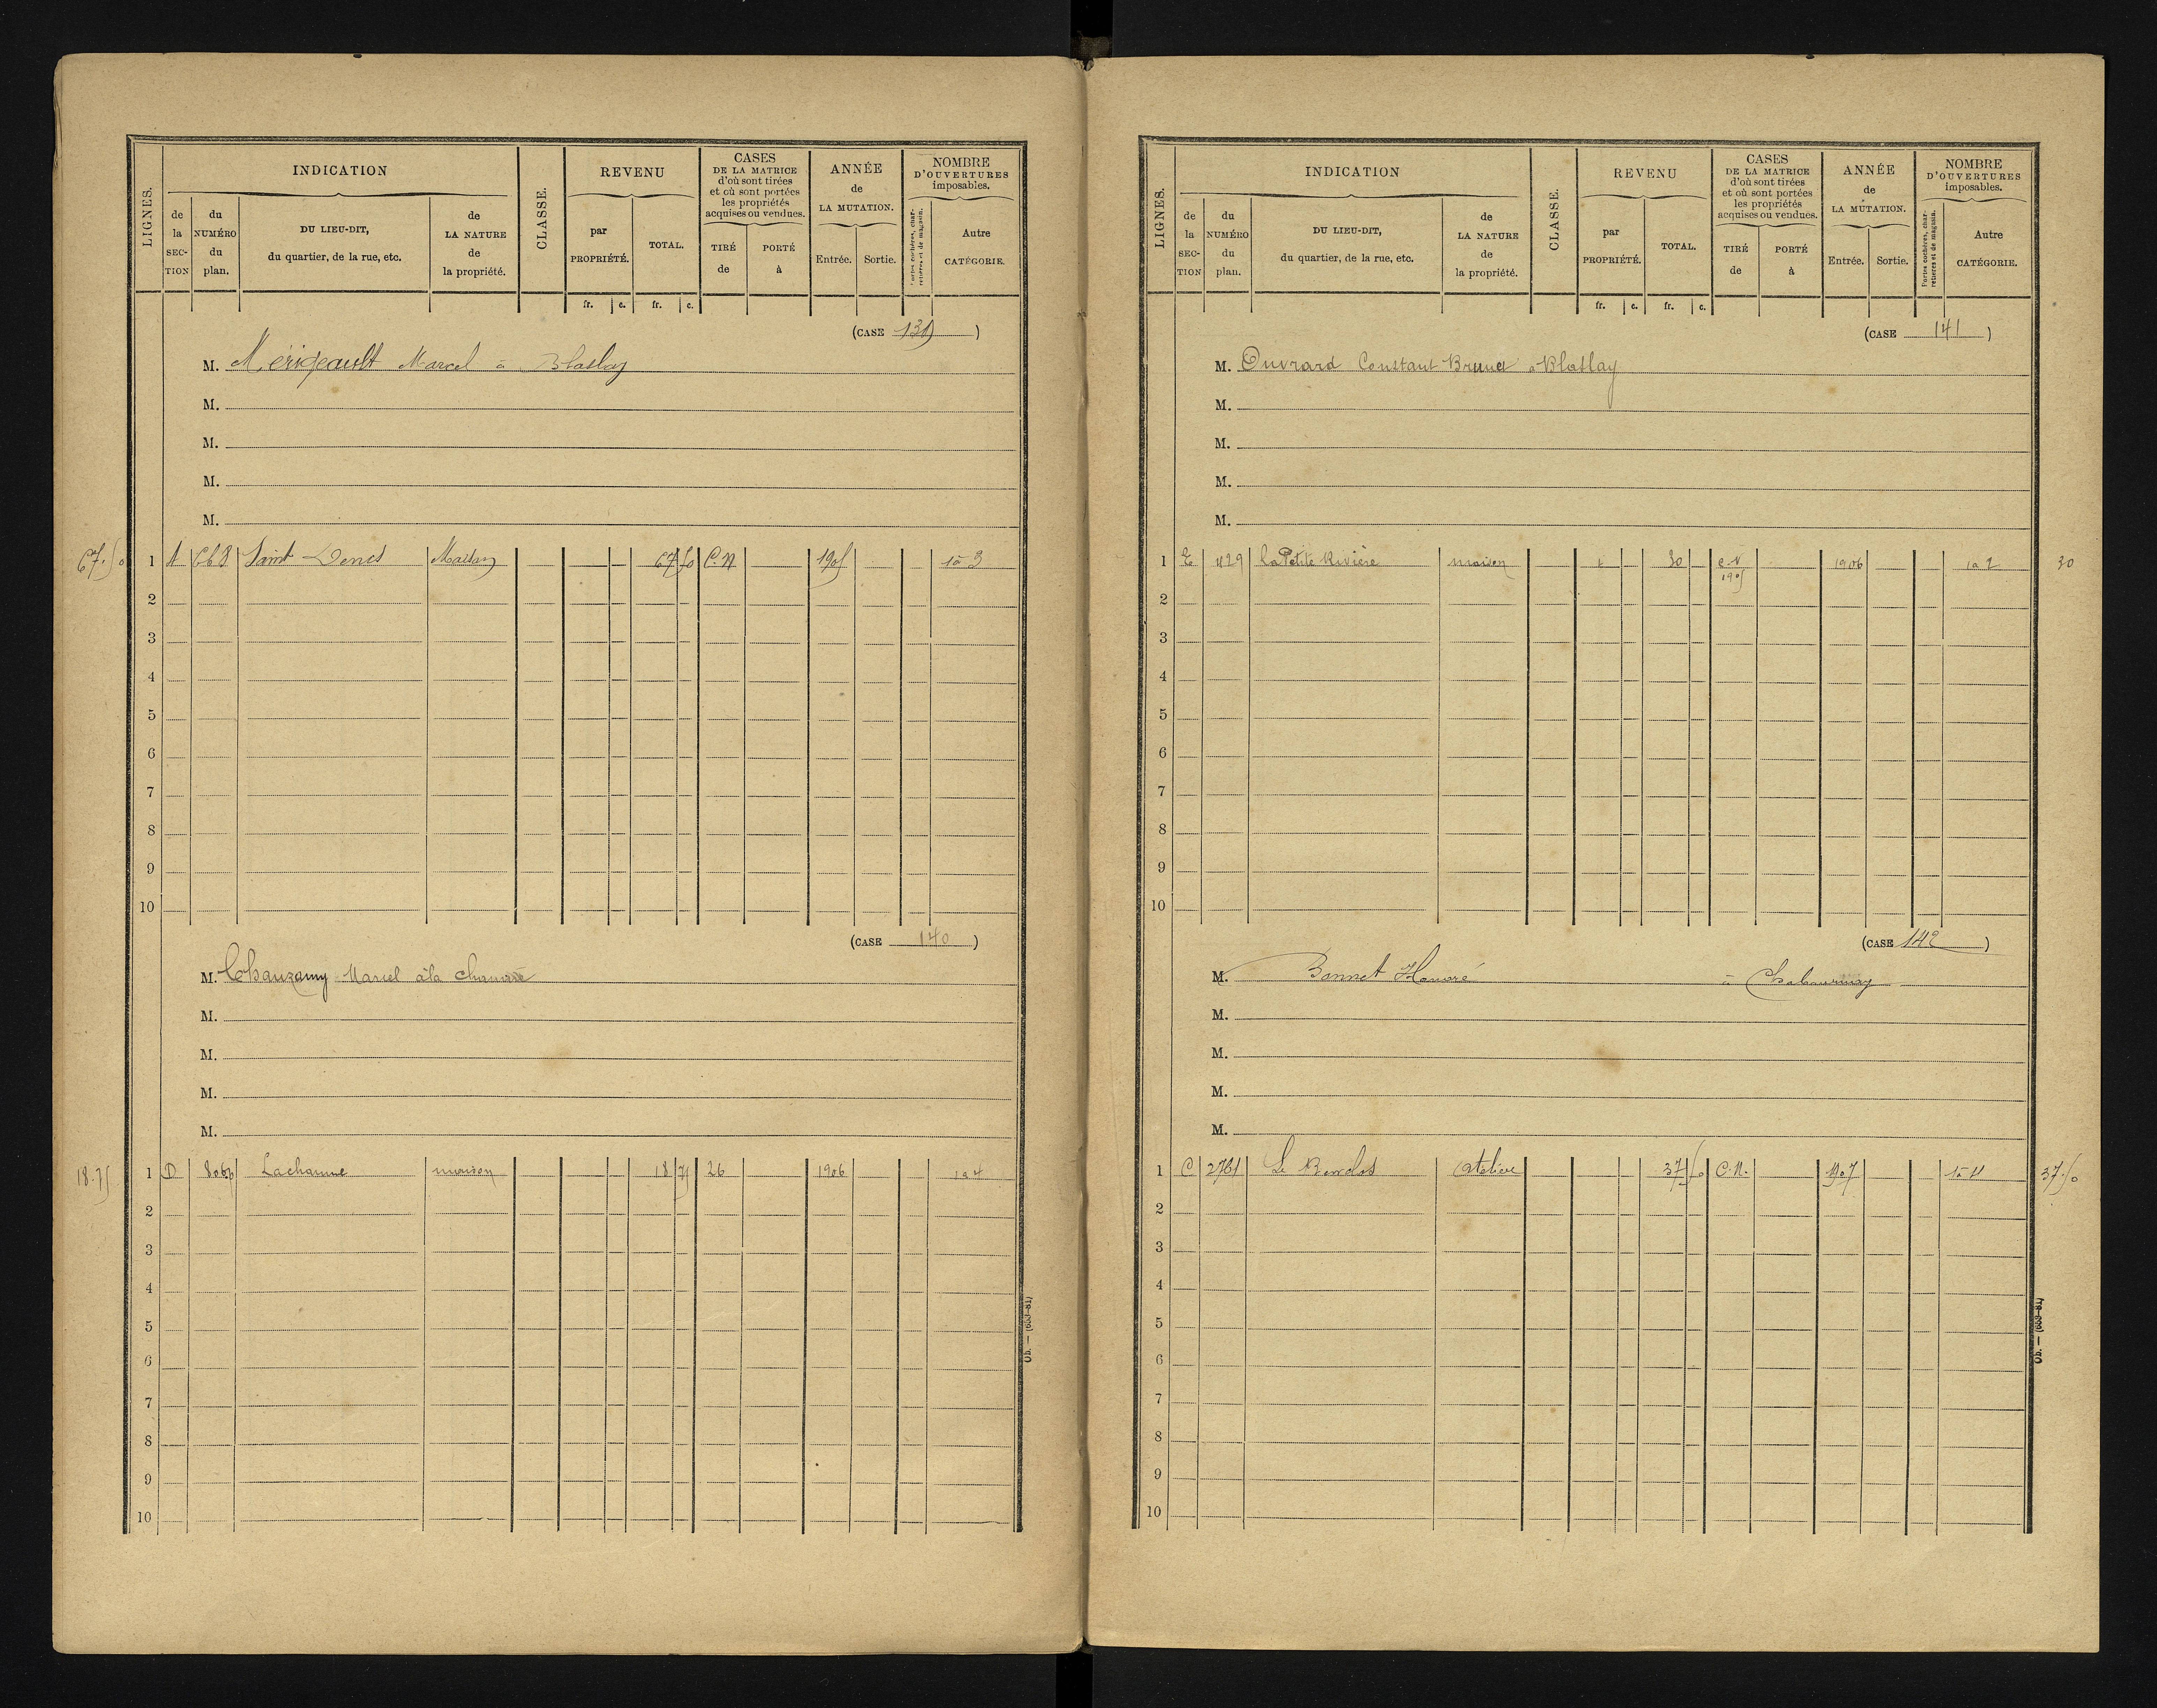 LIGNES.
INDICATION
de la SECTION
du NUMÉRO du plan.
DU LIEU-DIT, du quartier, de la rue, etc.
de LA NATURE de la propriété.
CLASSE.
REVENU
par PROPRIÉTÉ.
TOTAL.
CASES DE LA MATRICE d'où sont tirées et où sont portées les propriétés acquises ou vendues.
TIRÉ de
PORTÉ à
ANNÉE de LA MUTATION.
Entrée.
Sortie.
NOMBRE D'OUVERTURES imposables.
Portes cochères, charretières et de magasin.
Autre CATÉGORIE.
fr. c. fr. c.
(CASE 139)
M. Mérigeault Marcel à Blaslay
M.
M.
M.
M.
67.50 1 A 668 Saint Denis Maison 67 50 C.N 1905 1 à 3
2
3
4
5
6
7
8
9
10
(CASE 140)
M. Chauzamy Marcel à la chaume
M.
M.
M.
M.
18.75 1 D 806 Lachaume maison 18 75 26 1906 1 à 4
2
3
4
5
6
7
8
9
10
Ob. — (653-81)
LIGNES.
INDICATION
de la SECTION
du NUMÉRO du plan.
DU LIEU-DIT, du quartier, de la rue, etc.
de LA NATURE de la propriété.
CLASSE.
REVENU
par PROPRIÉTÉ.
TOTAL.
CASES DE LA MATRICE d'où sont tirées et où sont portées les propriétés acquises ou vendues.
TIRÉ de
PORTÉ à
ANNÉE de LA MUTATION.
Entrée.
Sortie.
NOMBRE D'OUVERTURES imposables.
Portes cochères, charretières et de magasin.
Autre CATÉGORIE.
fr. c. fr. c.
(CASE 141)
M. Ouvrard Constant Bruno à Blaslay
M.
M.
M.
M.
1 E 429 la Petite Rivière maison 30 C.N 1905 1906 1 à 2 30
2
3
4
5
6
7
8
9
10
(CASE 142)
M. Bonnet Honoré à Chabournay
M.
M.
M.
M.
1 C 2761 Le atelier 37 50 C.N. 1907 1 à 4 37.50
2
3
4
5
6
7
8
9
10
Ob. — (653-81)